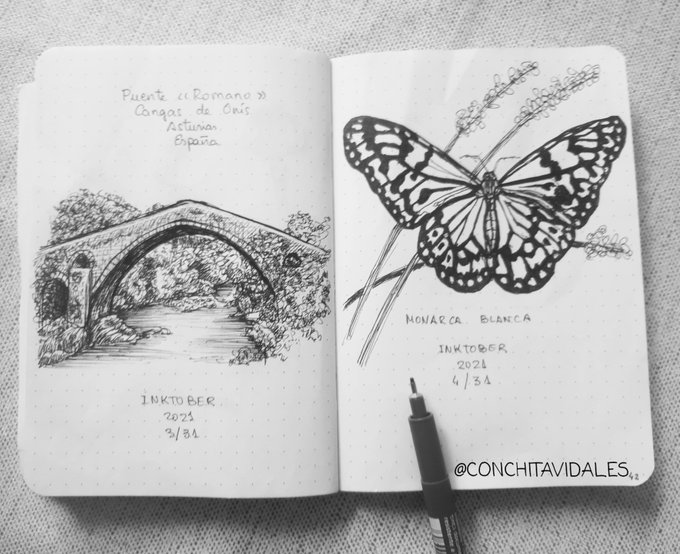 Puente «Romano»
Cangas de Onís
Asturias
España
INKTOBER
2021
3/31
MONARCA BLANCA
INKTOBER
2021
4/31
@CONCHITAVIDALES
42